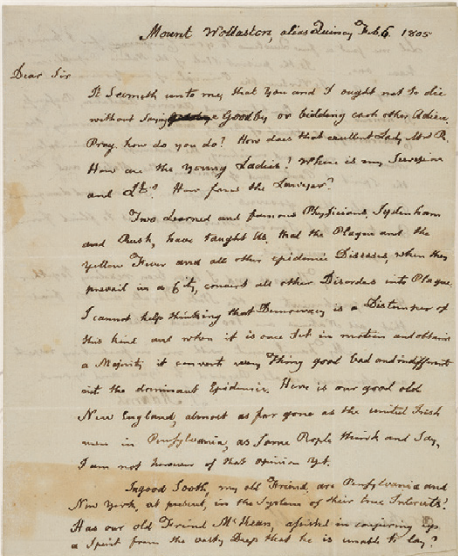 Mount Wollaston, alias Quincy Feb. 6 1805
Dear Sir
It Seemeth unto me, that you and I ought not to die
without Saying Goodby or bidding each other Adieu.
Pray how do you do? How does that excellent Lady Mrs R.
How are the young Ladies? Where is my Surgeon
and Lt.? How fares the Lawyer?
Two Learned and famous Physicians, Sydenham
and Rush, have taught Us, that the Plague and the
Yellow Fever and all other epidemic Diseases, when they
prevail in a City, convert all other Disorders into Plague.
I cannot help thinking that Democracy is a Distemper of
this kind and when it is once Set in motion and obtains
a Majority it converts every Thing good bad and indifferent
into the dominant Epidemic. Here is our good old
New England, almost as far gone as the United Irish
men in Pensylvania, as Some People think and Say,
I am not however of that opinion yet.
In good Sooth, my old Friend, are Pensylvania and
New York, at present, in the Systems of their true Interests?
Has our old Friend McKean, assisted in conjuring up
a Spirit from the vasty Deep that he is unable to lay?